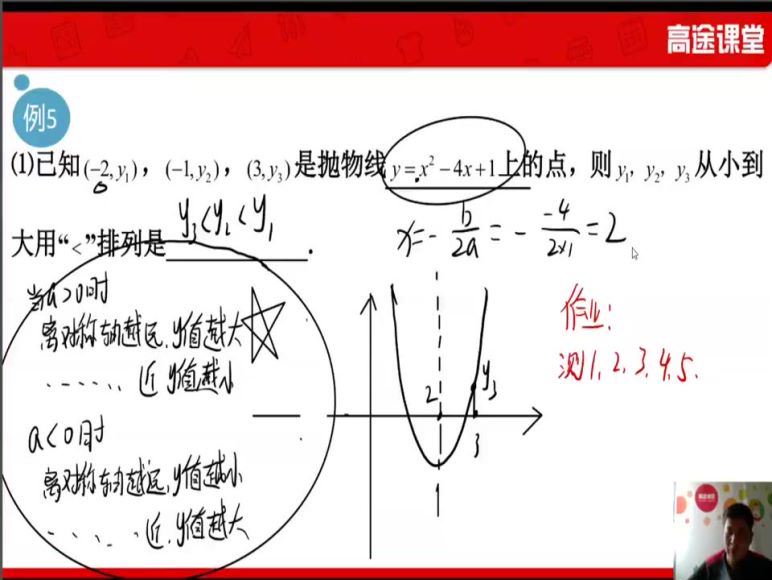 高途课堂
例5
(1)已知(-2,y₁)，(-1,y₂)，(3,y₃)是抛物线y=x²-4x+1上的点，则y₁，y₂，y₃从小到
大用“<”排列是 y₃<y₂<y₁ .
x=-b/2a=-(-4)/(2×1)=2
当a>0时
离对称轴越远,y值越大
······近 y值越小
a<0时
离对称轴越远,y值越小
·····近,y值越大
2
y₃
3
作业:
测1.2.3.4.5.